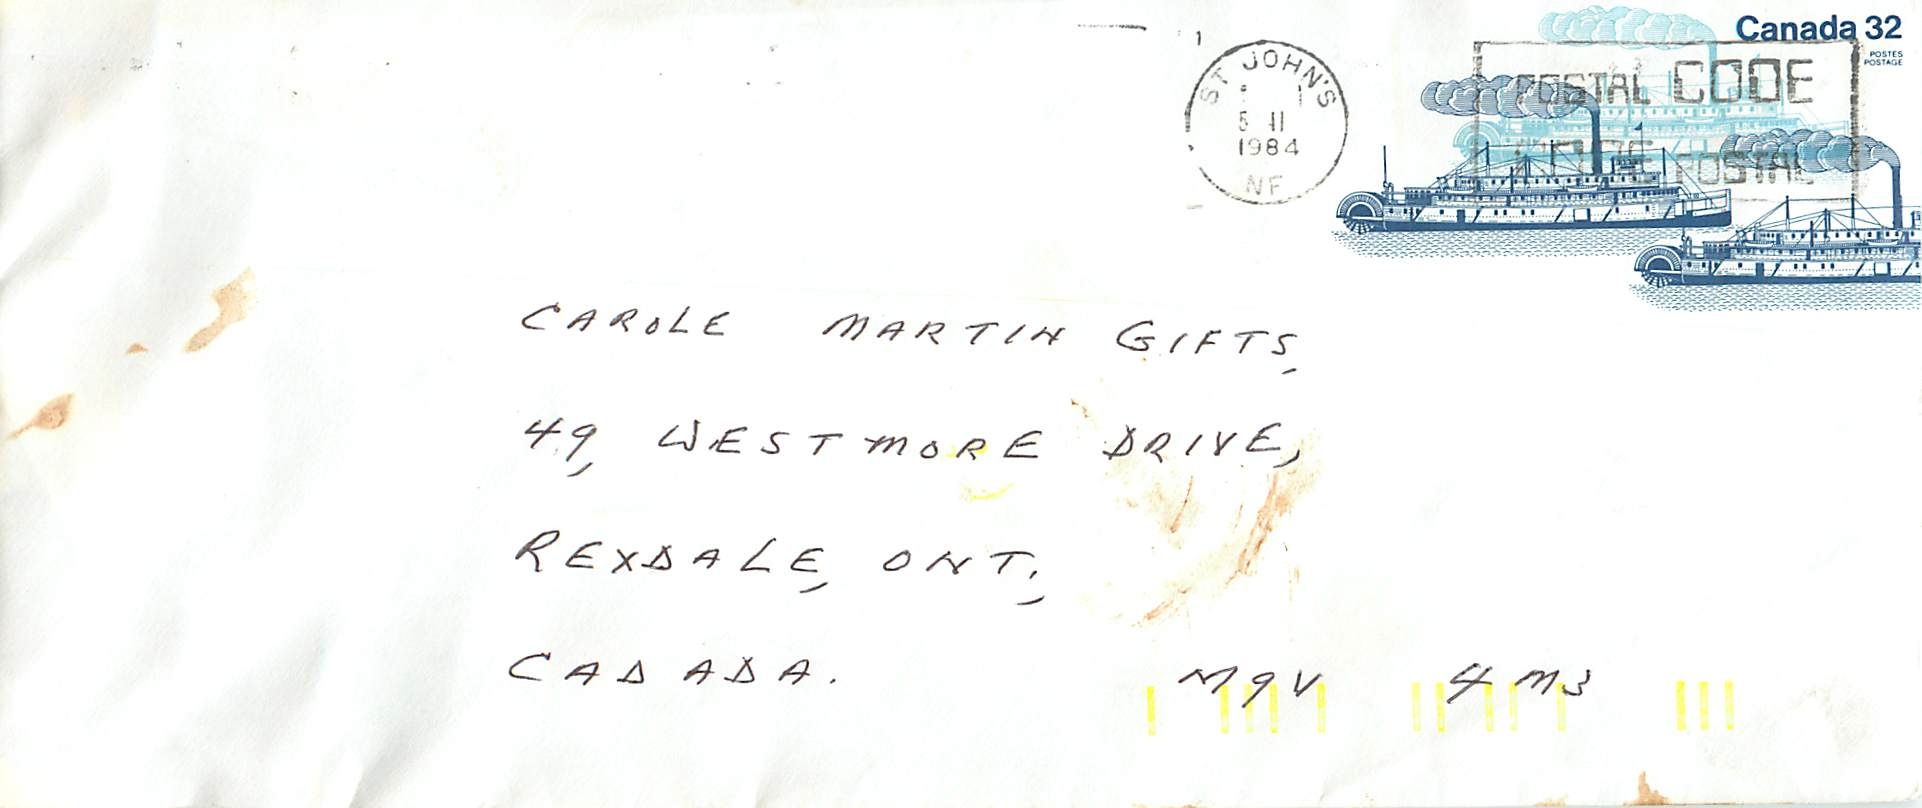 Canada 32
POSTES
POSTAGE
ST JOHN'S
5 II
1984
NF
POSTAL CODE
CODE POSTAL
CAROLE MARTIN GIFTS,
49, WESTMORE DRIVE,
REXDALE, ONT.,
CADADA.
M9V 4M3